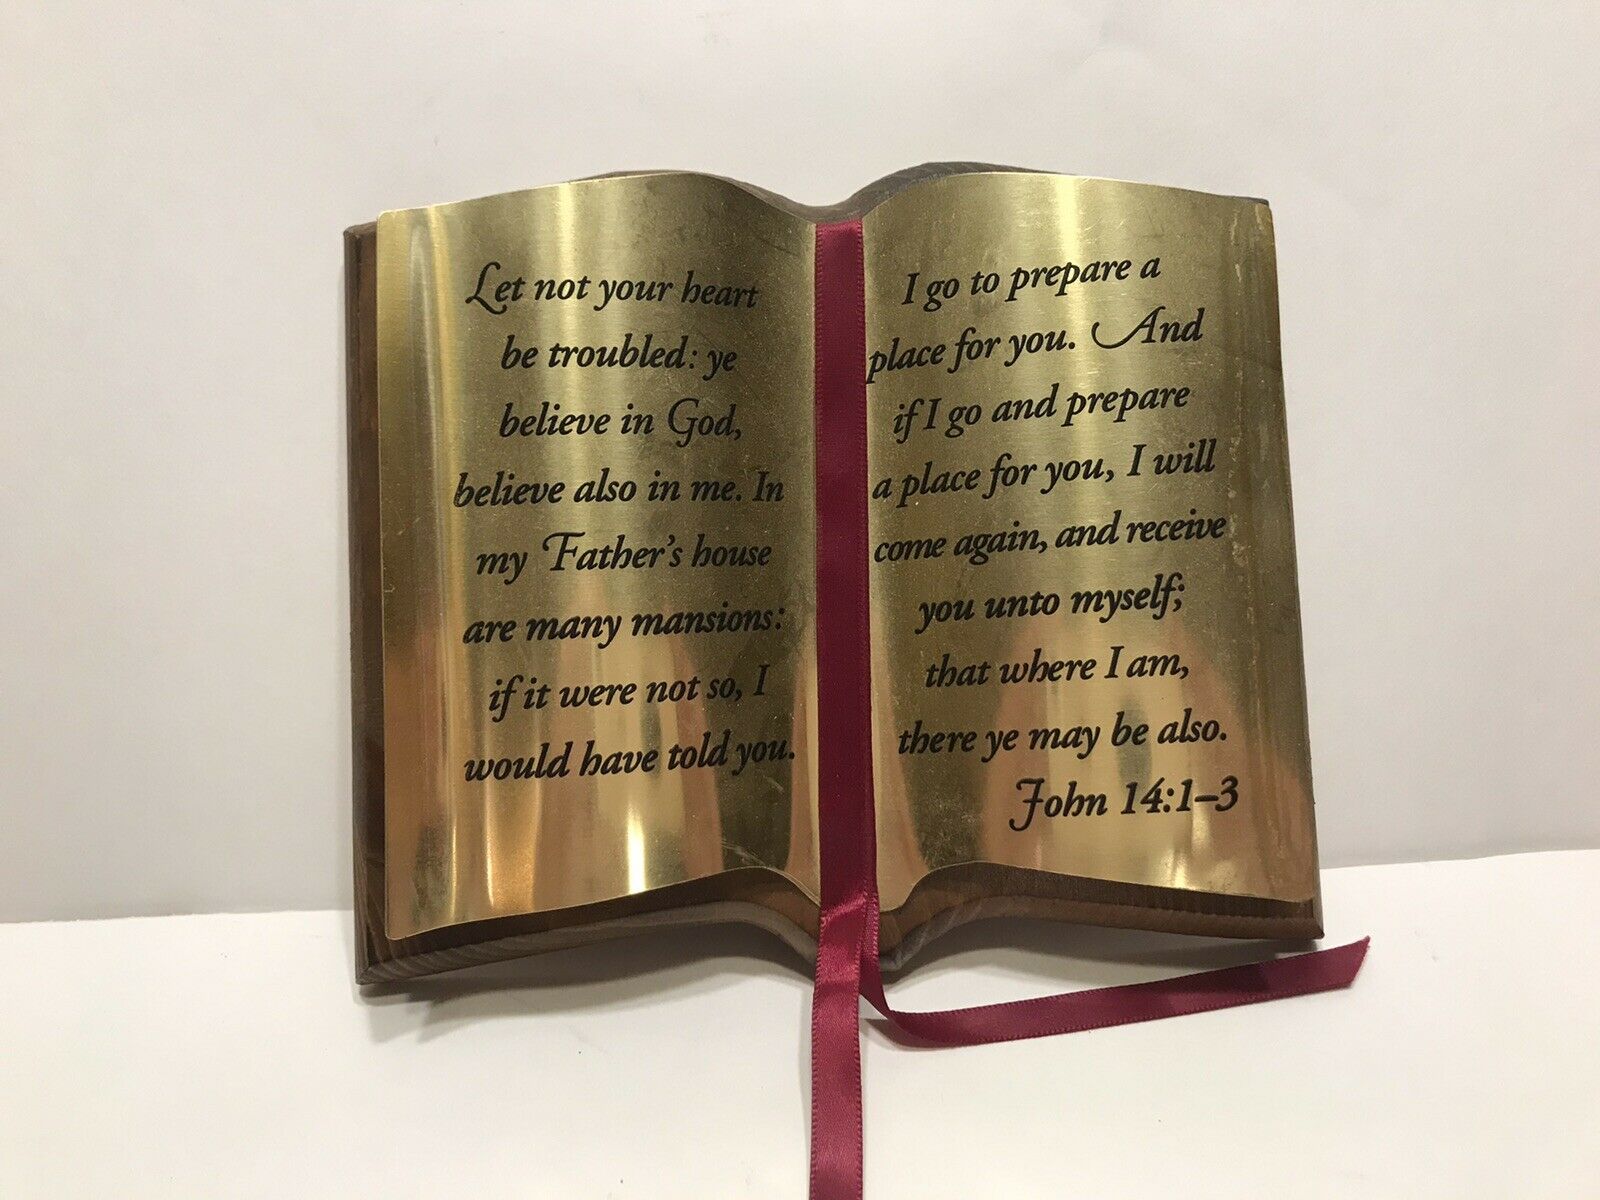 Let not your heart
be troubled: ye
believe in God,
believe also in me. In
my Father's house
are many mansions:
if it were not so, I
would have told you.
I go to prepare a
place for you. And
if I go and prepare
a place for you, I will
come again, and receive
you unto myself;
that where I am,
there ye may be also.
John 14:1–3